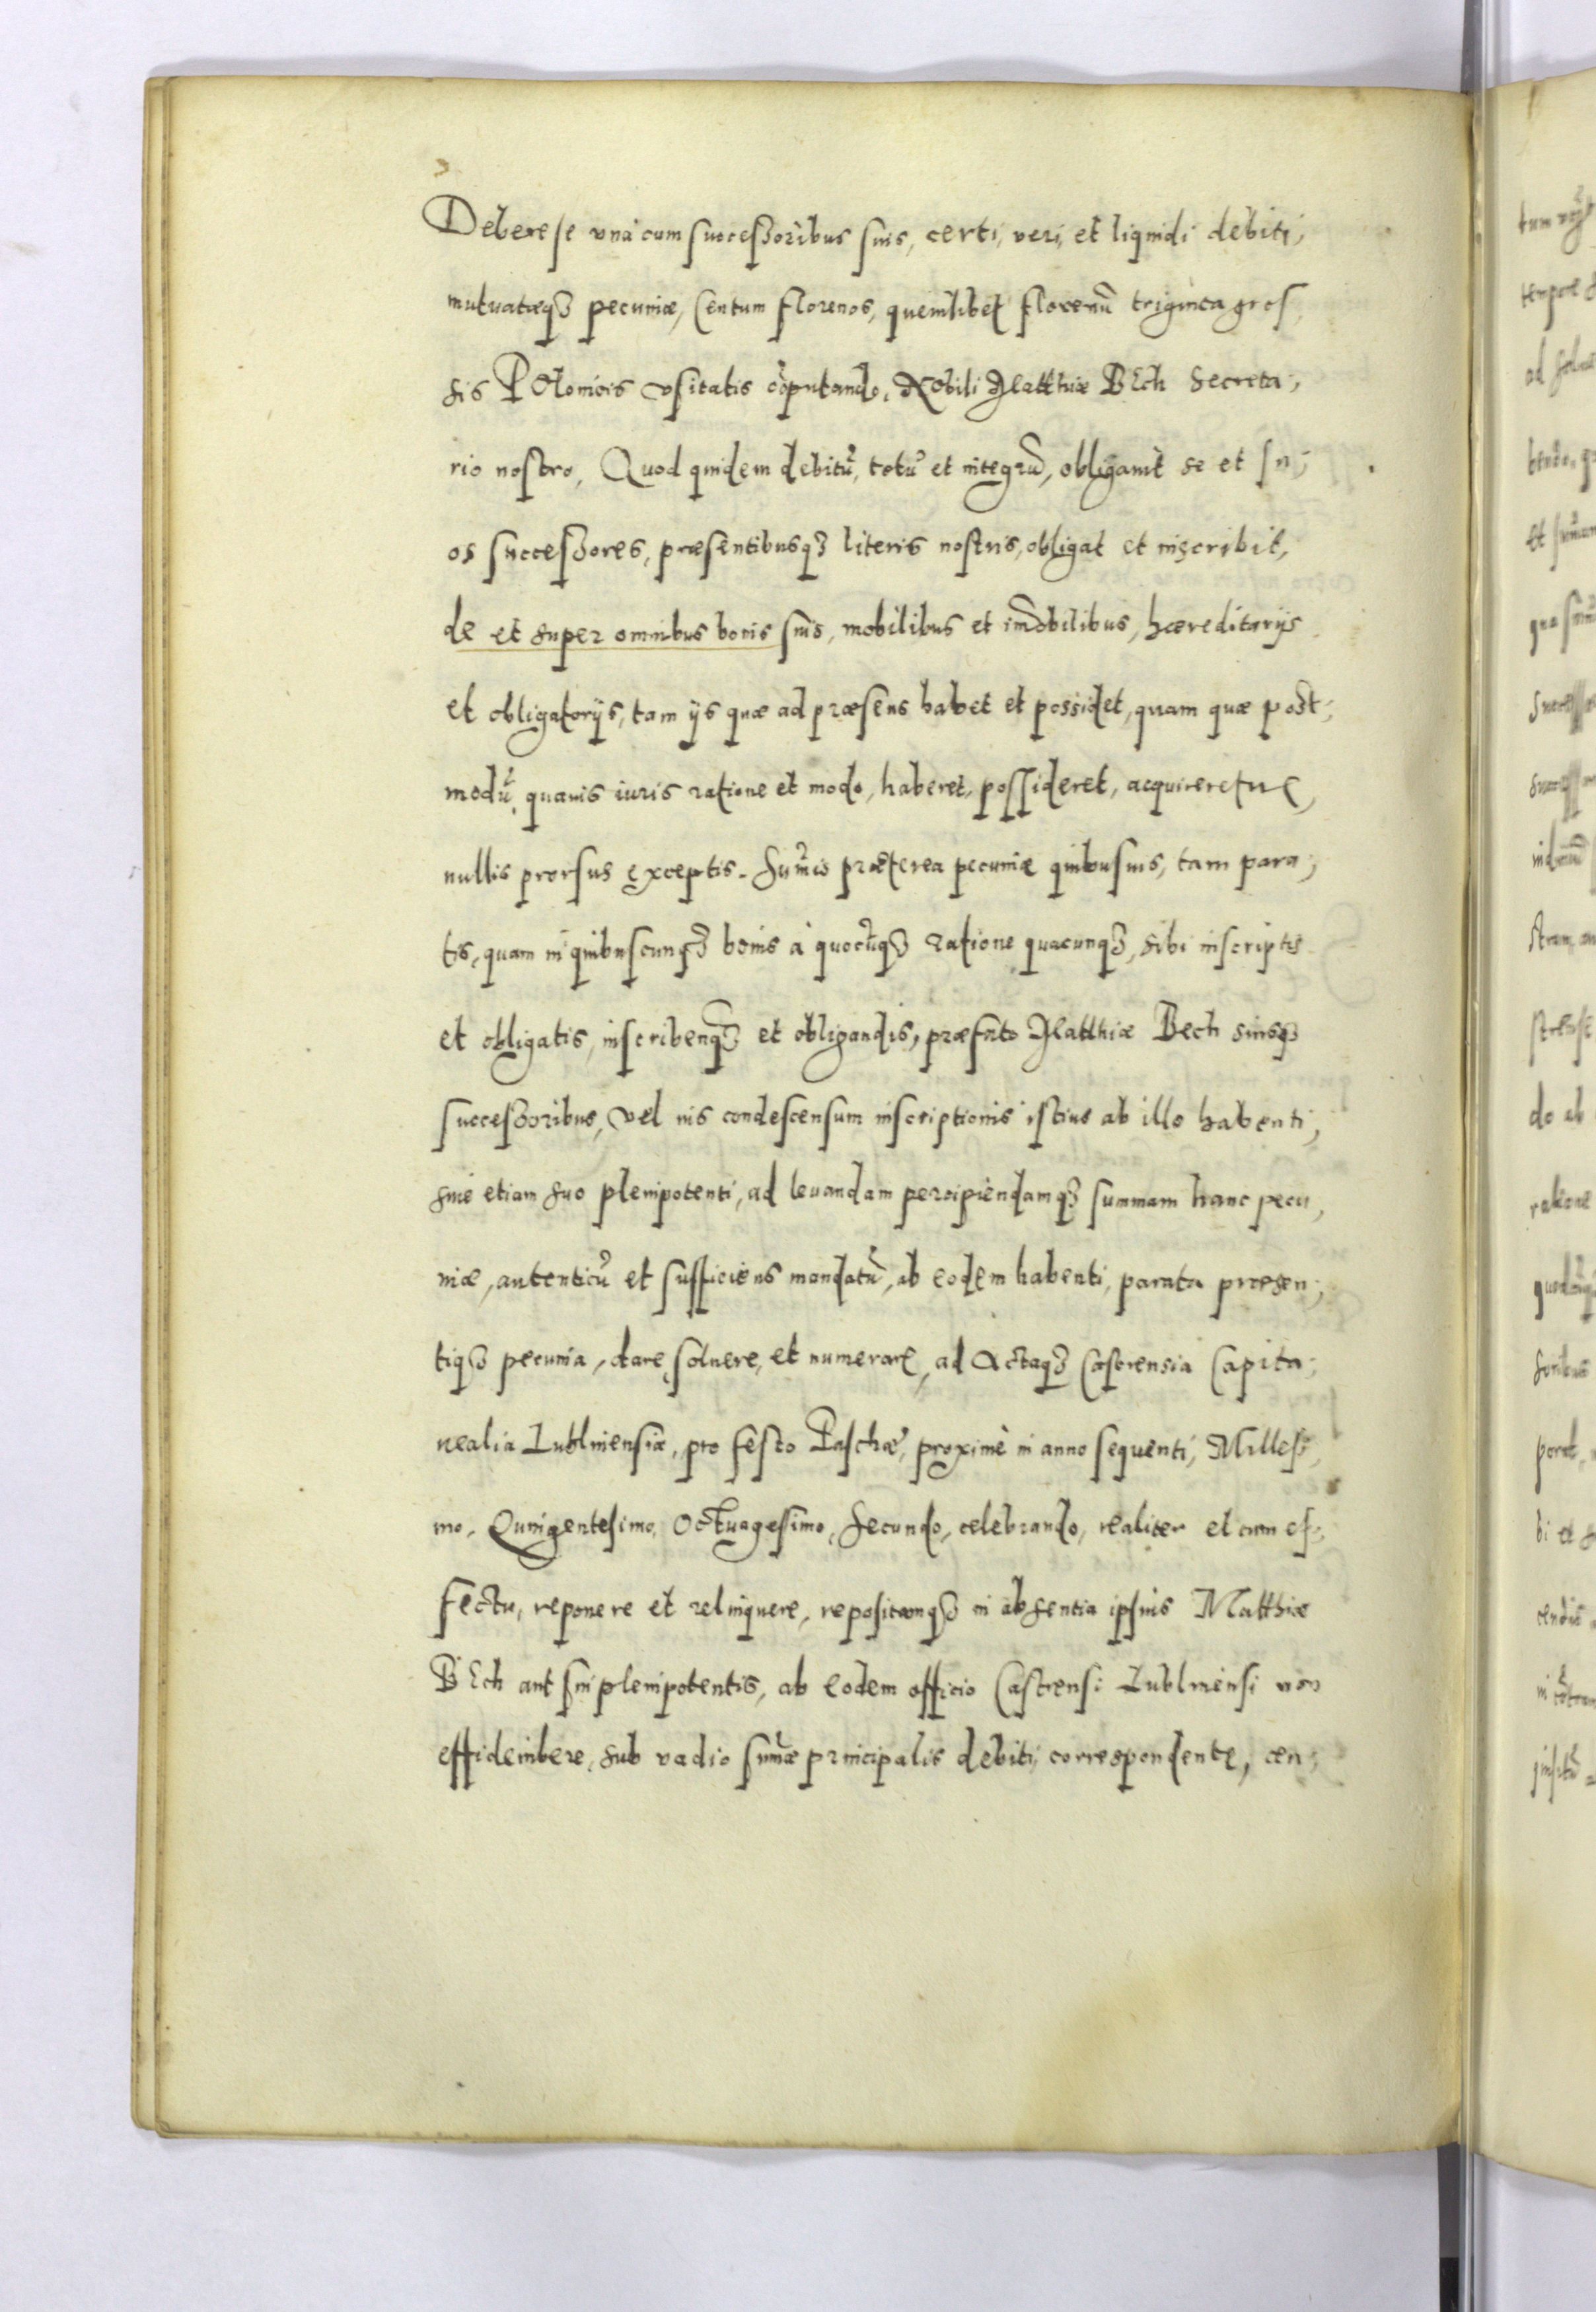 Debere se vnà cum successoribus suis, certi, veri, et liquidi debiti,
mutuatæq3 pecuniæ, Centum florenos, quemlibet florenũ triginta gros
sis Polonicis vsitatis cõputando, Nobili Matthiæ Bech Secreta,
rio nostro, Quod quidem debitũ, totũ et integrũ, obligauit se et su,
os successores, præsentibusq3 literis nostris, obligat et inscribit,
de et super omnibus bonis suis, mobilibus et im̃obilibus, hæreditarijs
et obligatorijs, tam ijs quæ ad præsens habet et possidet, quam quæ post,
modũ, quauis iuris ratione et modo, haberet, possideret, acquireretue,
nullis prorsus exceptis. Sum̃is præterea pecuniæ quibusuis, tam para,
tis, quam in quibuscunq3 bonis à quocũq3 ratione quacunq3, sibi inscriptis
et obligatis, inscribenq3 et obligandis, præfato Matthiæ Bech suisq3
successoribus, vel uis condescensum inscriptionis istius ab illo habenti,
siue etiam suo plenipotenti, ad leuandam percipiendamq3 summam hanc pecu,
niæ, autenticũ et sufficiens mandatũ, ab eodem habenti, parata præsen,
tiq3 pecunia, dare, soluere, et numerare, ad Actaq3 Castrensia Capita,
nealia Lublinensia, pro festo Paschæ, proximè in anno sequenti, Millesi,
mo, Quingentesimo, Octuagesimo, Secundo, celebrando, realiter et cum ef,
fectu, reponere et relinquere, repositamq3 in absentia ipsius Matthiæ
Bech aut sui plenipotentis, ab eodem officio Castrensi Lublinensi non
effideiubere, sub vadio sum̃æ principalis debiti, correspondente, cen,